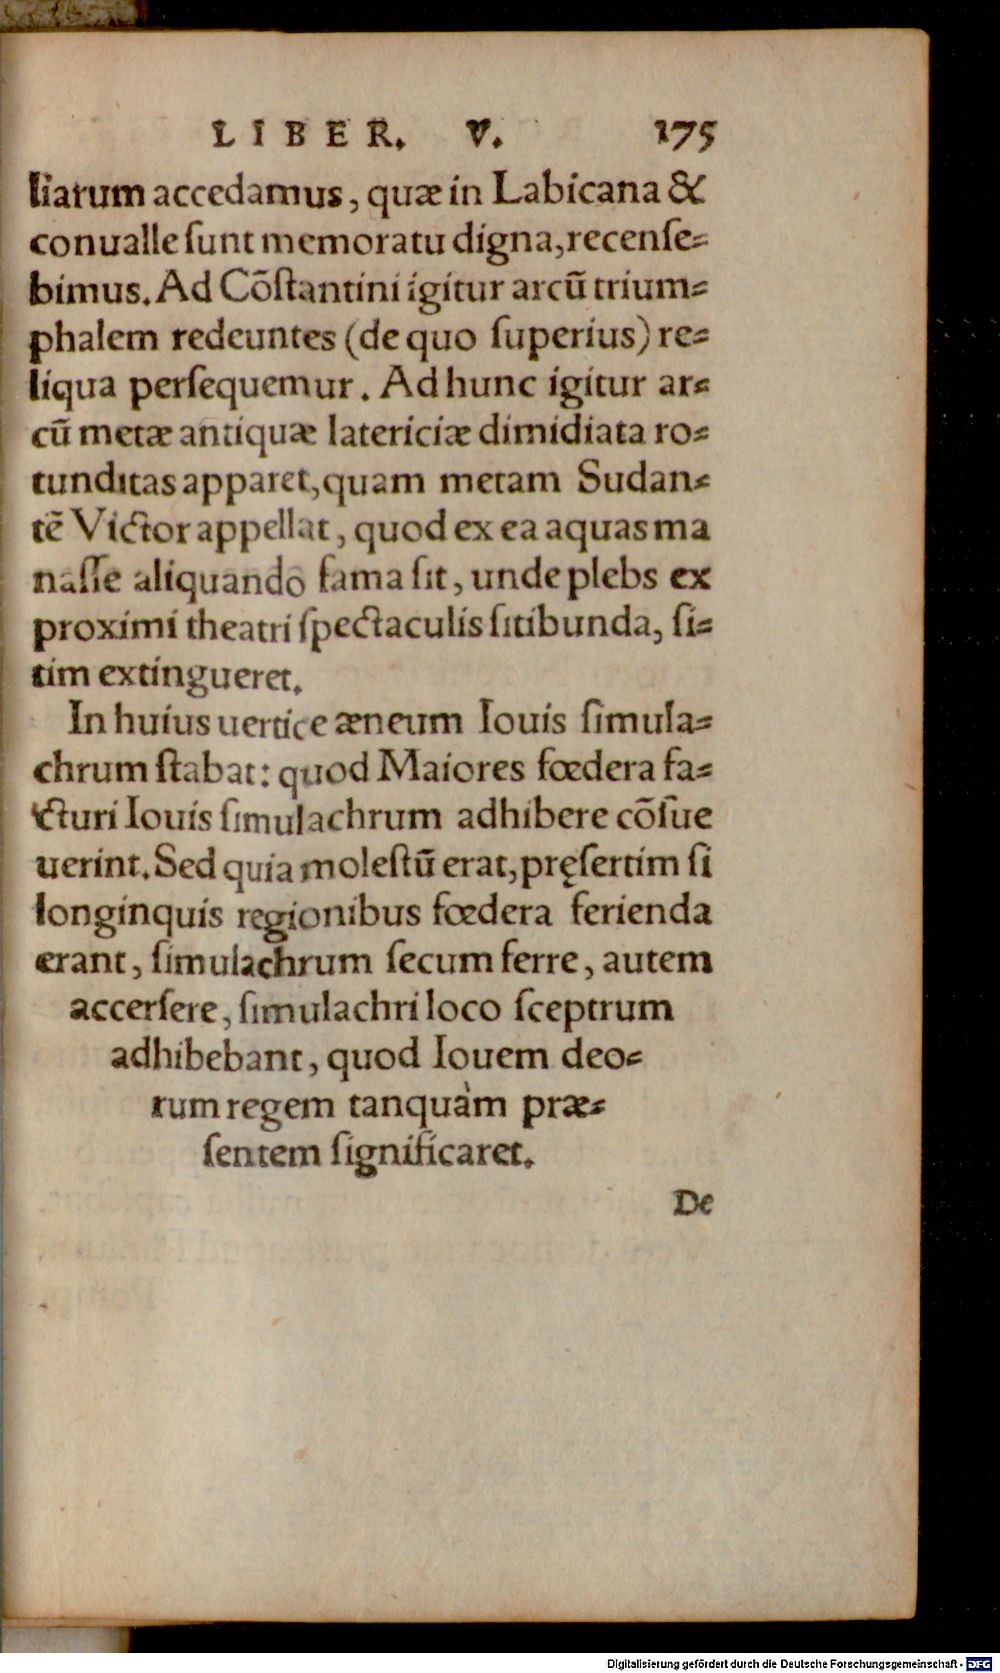 LIBER. V. 175
liarum accedamus, quæ in Labicana &
conualle ſunt memoratu digna, recenſe⸗
bimus. Ad Cõſtantini igitur arcũ trium⸗
phalem redeuntes (de quo ſuperius) re⸗
liqua perſequemur. Ad hunc igitur ar⸗
cũ metæ antiquæ latericiæ dimidiata ro⸗
tunditas apparet, quam metam Sudan⸗
tẽ Victor appellat, quod ex ea aquas ma
naſſe aliquando fama ſit, unde plebs ex
proximi theatri ſpectaculis ſitibunda, ſi⸗
tim extingueret.
In huius uertice æneum Iouis ſimula⸗
chrum ſtabat: quod Maiores fœdera fa⸗
cturi Iouis ſimulachrum adhibere cõſue
uerint. Sed quia moleſtũ erat, pręſertim ſi
longinquis regionibus fœdera ferienda
erant, ſimulachrum ſecum ferre, autem
accerſere, ſimulachri loco ſceptrum
adhibebant, quod Iouem deo⸗
rum regem tanquàm præ⸗
ſentem ſignificaret.
De
Digitalisierung gefördert durch die Deutsche Forschungsgemeinschaft - DFG